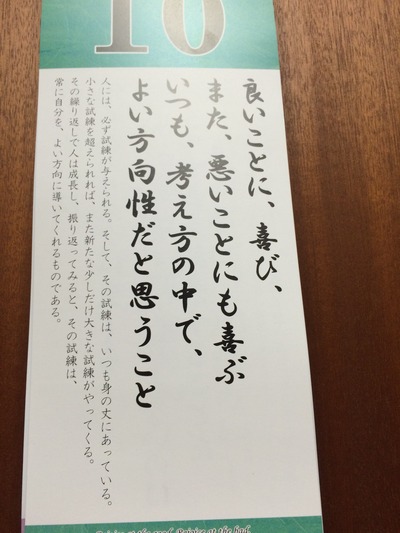 10
良いことに、喜び、
また、悪いことにも喜ぶ
いつも、考え方の中で、
よい方向性だと思うこと
人には、必ず試練が与えられる。そして、その試練は、いつも身の丈にあっている。
小さな試練を超えられれば、また新たな少しだけ大きな試練がやってくる。
その繰り返しで人は成長し、振り返ってみると、その試練は、
常に自分を、よい方向に導いてくれるものである。
Rejoice at the good, Rejoice at the bad,